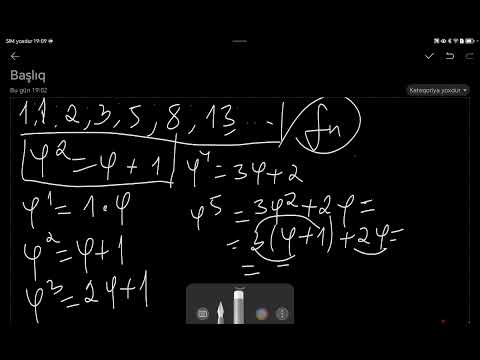 SIM yoxdur 19:09
Başlıq
Bu gün 19:02
Kateqoriya yoxdur
1,1,2,3,5,8,13... fn
φ² = φ + 1
φ⁴ = 3φ + 2
φ¹ = 1·φ
φ⁵ = 3φ² + 2φ =
φ² = φ + 1
= 3(φ + 1) + 2φ =
= =
φ³ = 2φ + 1